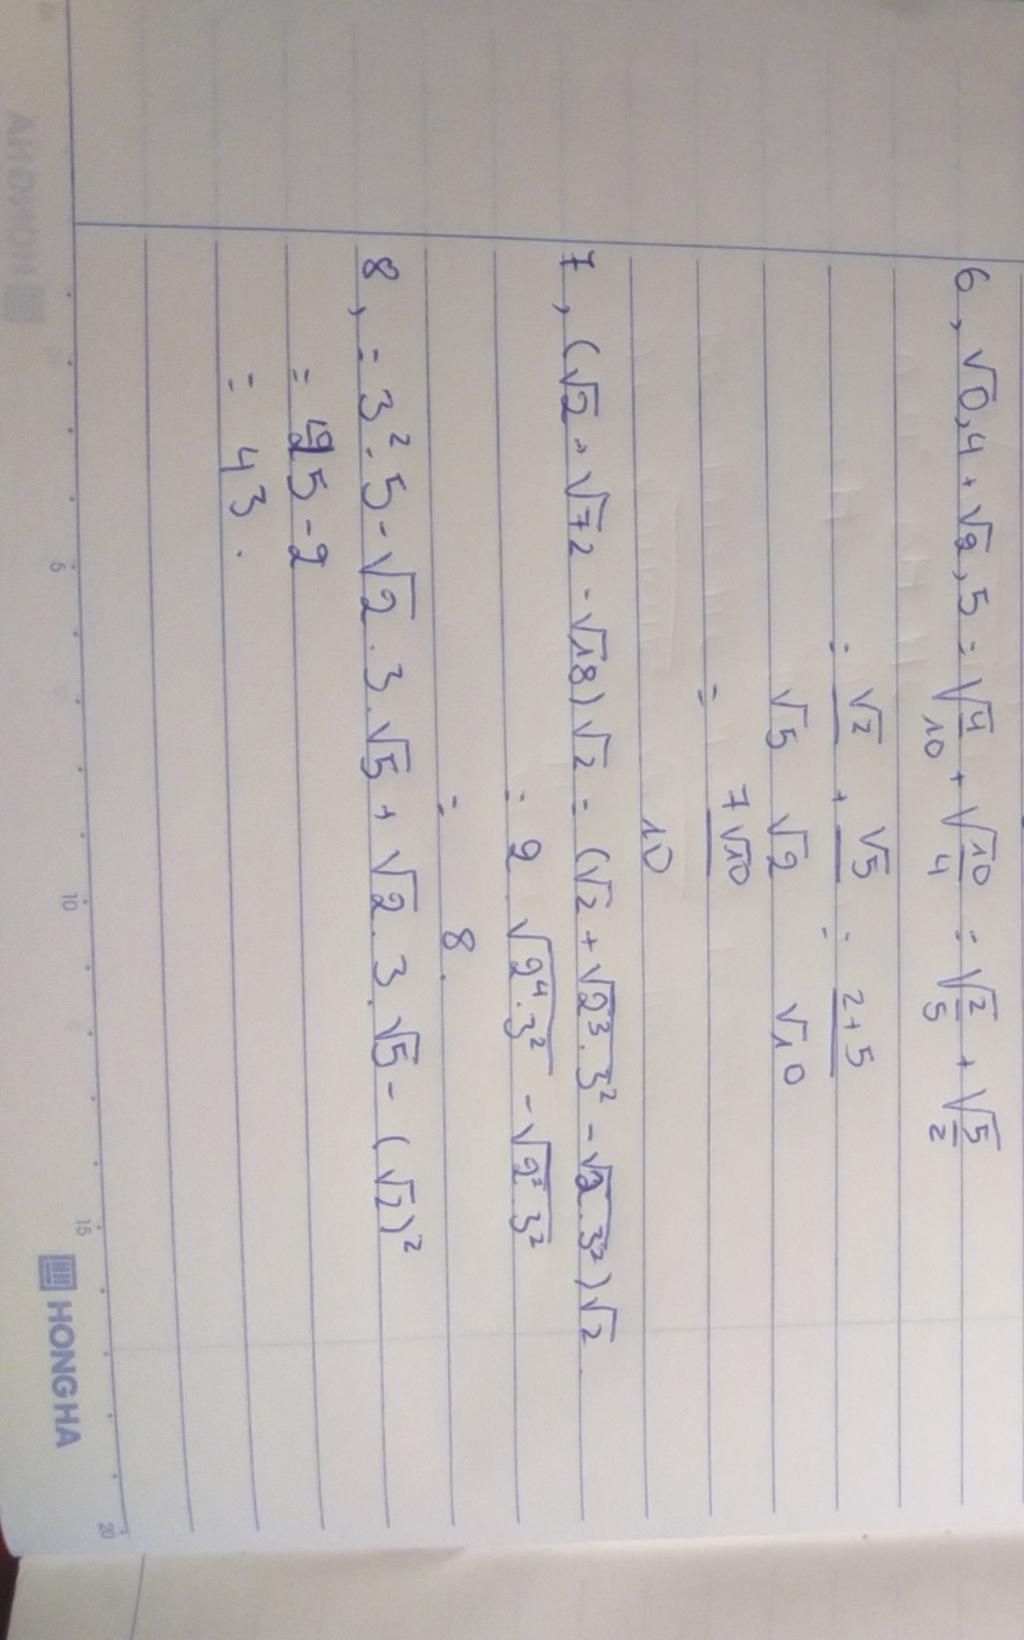 6, √0,4 + √2,5 = √4/10 + √10/4 = √2/5 + √5/2
= √2/√5 + √5/√2 = 2+5/√10
= 7√10/10
7, (√2 + √72 - √18)√2 = (√2 + √2³.3² - √2.3²)√2
= 2 . √2⁴.3² - √2².3²
= 8.
8, = 3².5 - √2.3.√5 + √2.3.√5 - (√2)²
= 45 - 2
= 43.
5 10 15 20
HONG HA